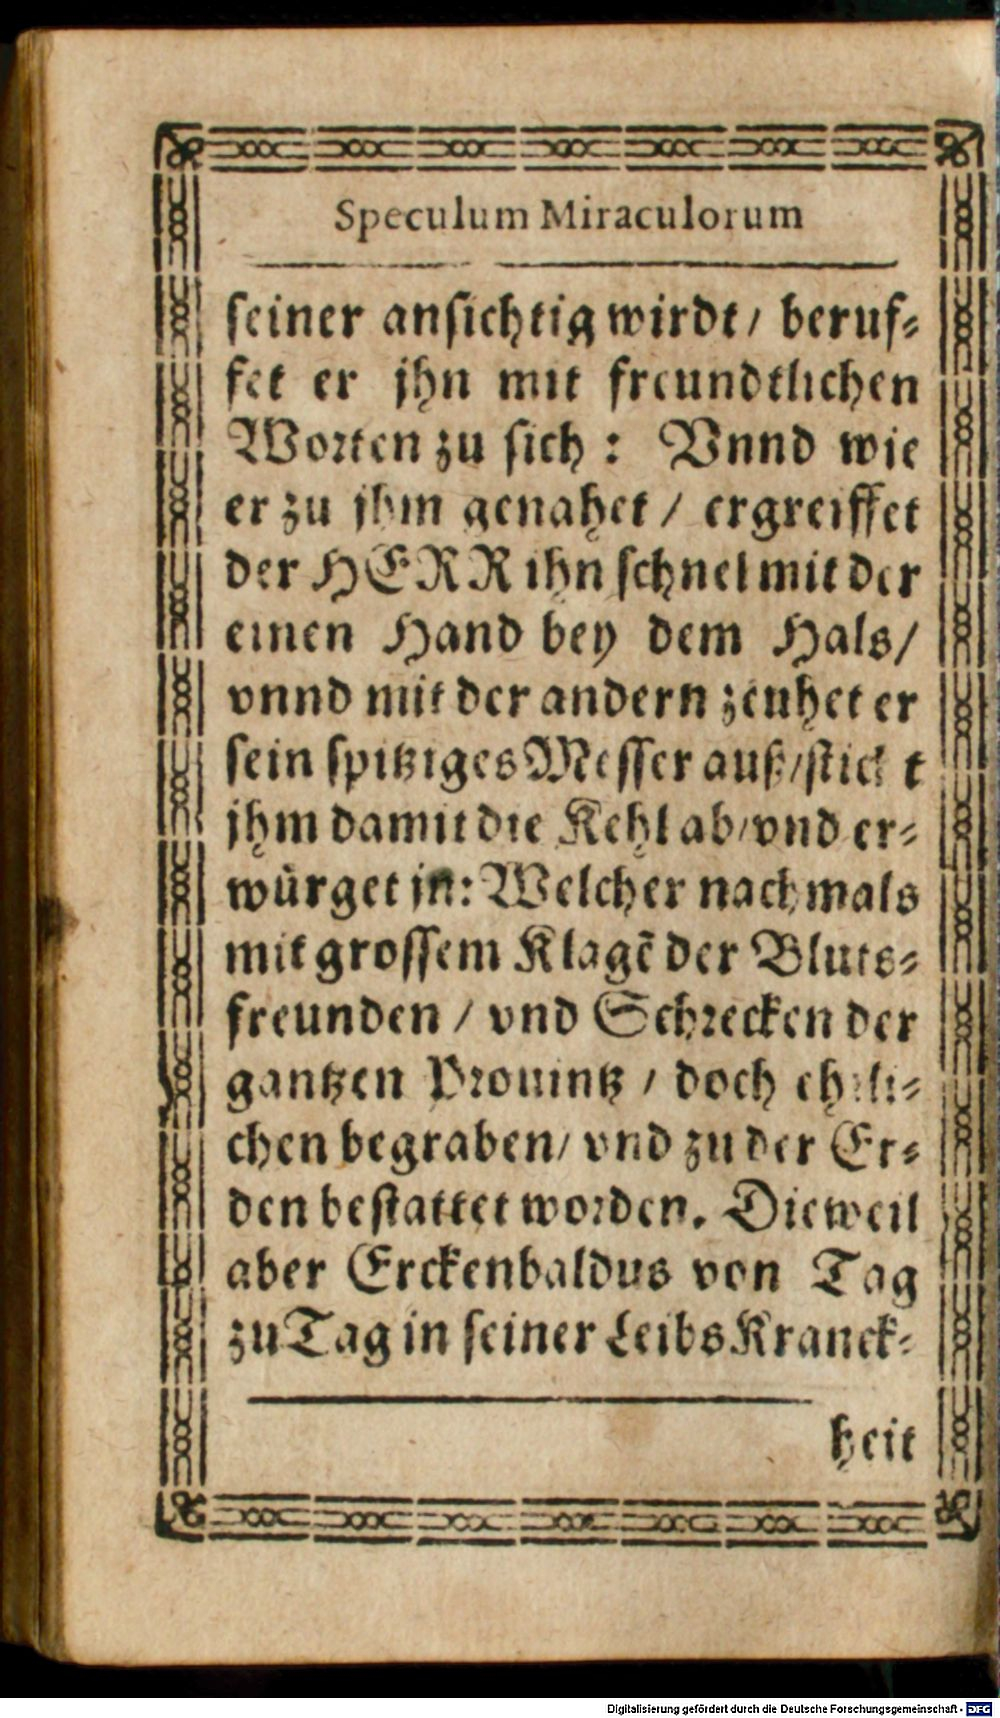 Speculum Miraculorum
seiner ansichtig wirdt / beruf⸗
fet er jhn mit freundtlichen
Worten zu sich : Vnnd wie
er zu jhm genahet / ergreiffet
der HERR ihn schnel mit der
einen Hand bey dem Hals /
vnnd mit der andern zeuhet er
sein spitziges Messer auß / stickt
jhm damit die Kehl ab / vnd er⸗
würget jn: Welcher nachmals
mit grossem Klagẽ der Bluts⸗
freunden / vnd Schrecken der
gantzen Prouintz / doch ehrli⸗
chen begraben / vnd zu der Er⸗
den bestattet worden. Dieweil
aber Erckenbaldus von Tag
zu Tag in seiner Leibs Kranck⸗
heit
Digitalisierung gefördert durch die Deutsche Forschungsgemeinschaft - DFG